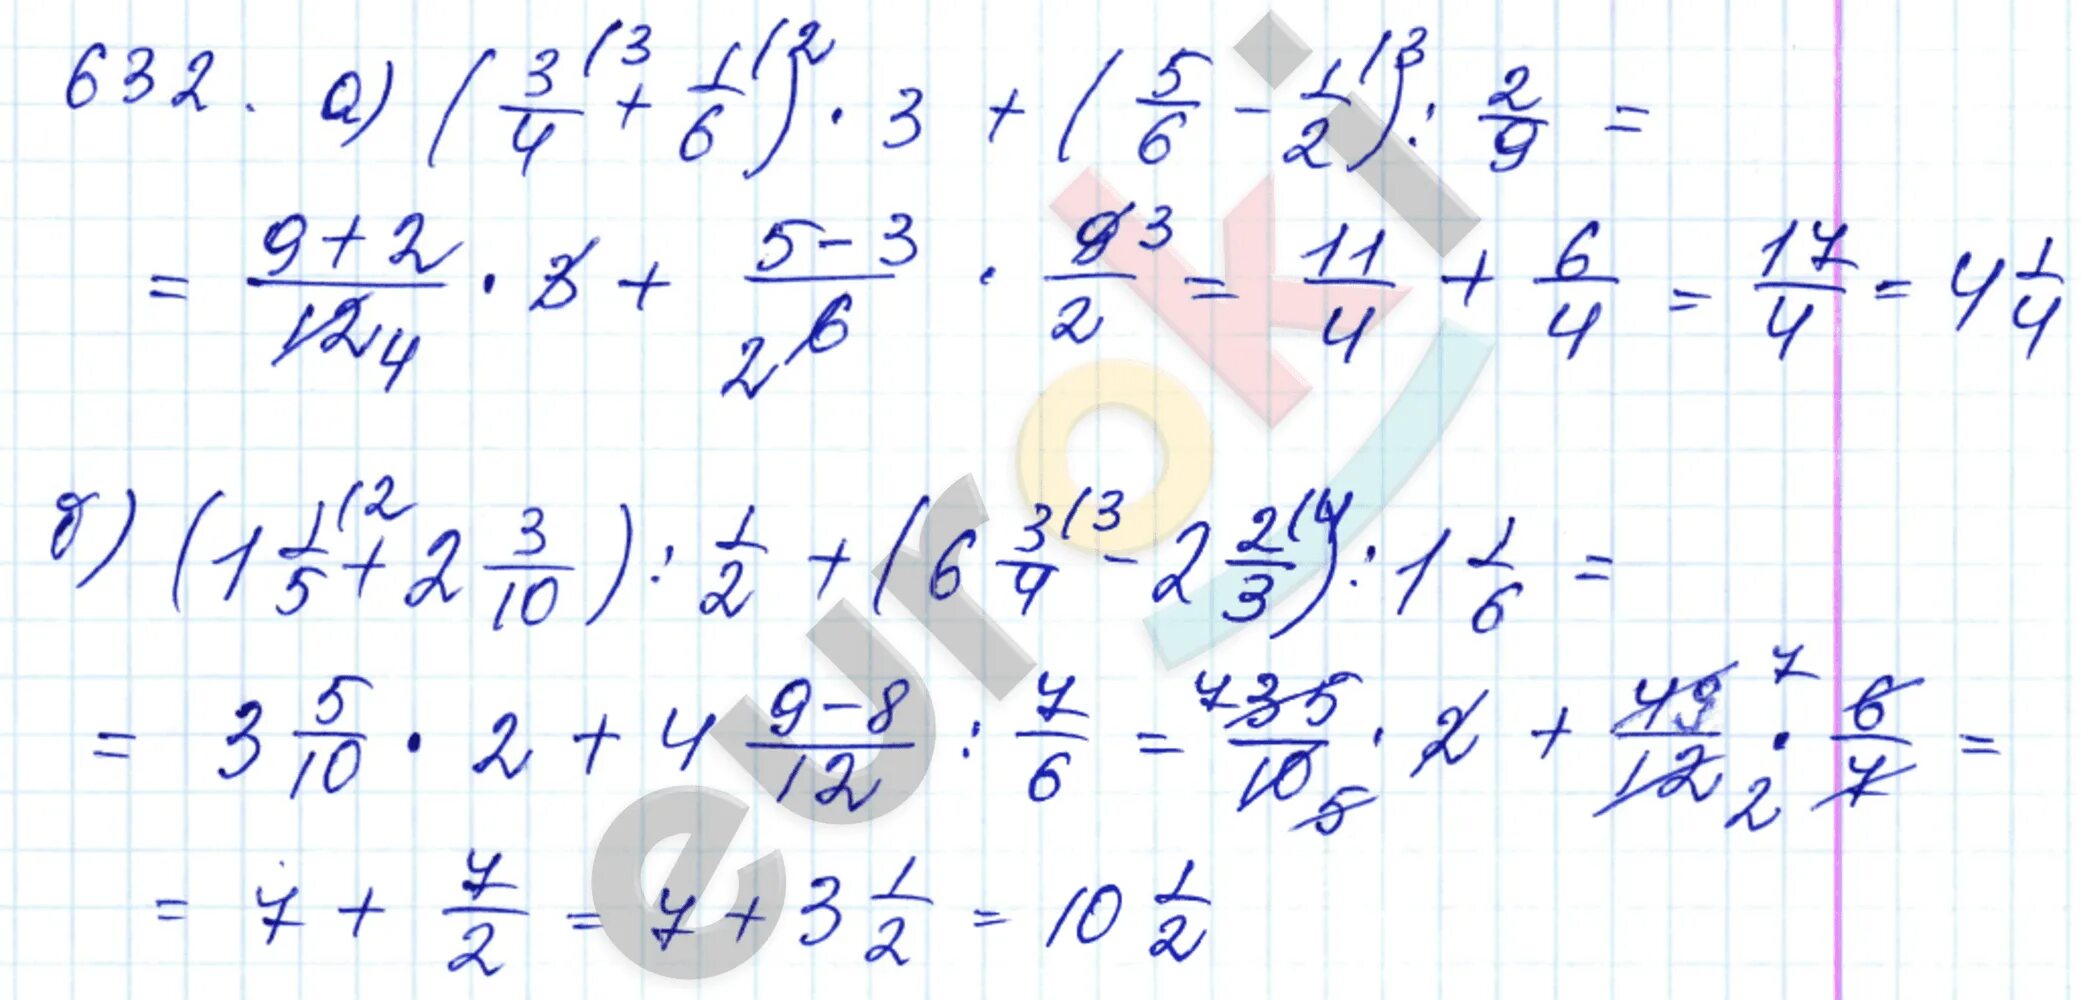 632. а) (3/4 (3 + 1/6 (2) · 3 + (5/6 - 1/2 (3) : 2/9 =
= 9+2/12 4 · 3 + 5-3/2 6 · 9 3/2 = 11/4 + 6/4 = 17/4 = 4 1/4
б) (1 1/5 (2 + 2 3/10) : 1/2 + (6 3/4 (3 - 2 2/3 (4) : 1 1/6 =
= 3 5/10 · 2 + 4 9-8/12 : 7/6 = 7 35/10 5 · 2 + 49 7/12 2 · 6/7 =
= 7 + 7/2 = 7 + 3 1/2 = 10 1/2
euroki